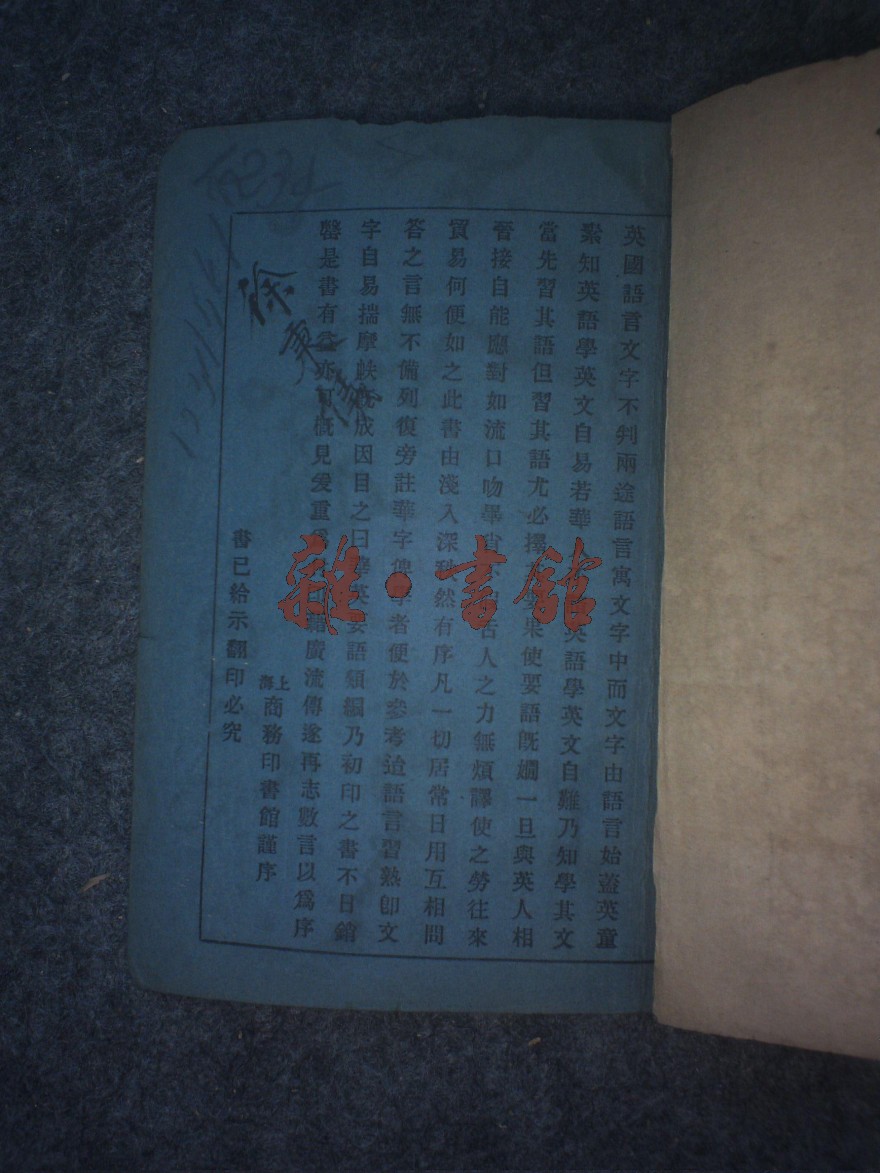 英國語言文字不判兩途語言寓文字中而文字由語言始蓋英童
鬀知英語學英文自易若華 英語學英文自難乃知學其文
當先習其語但習其語尤必擇 果使要語旣嫺一旦與英人相
晉接自能應對如流口吻畢肖 舌人之力無煩譯使之勞往來
貿易何便如之此書由淺入深秩然有序凡一切居常日用互相問
答之言無不備列復旁註華字俾學者便於參考迨語言習熟卽文
字自易揣摩 成因目之曰華英要語類編乃初印之書不日館
罄是書有益亦可槪見爰重 廣流傳遂再志數言以爲序
上海商務印書館謹序
書已給示翻印必究
徐
雜·書館